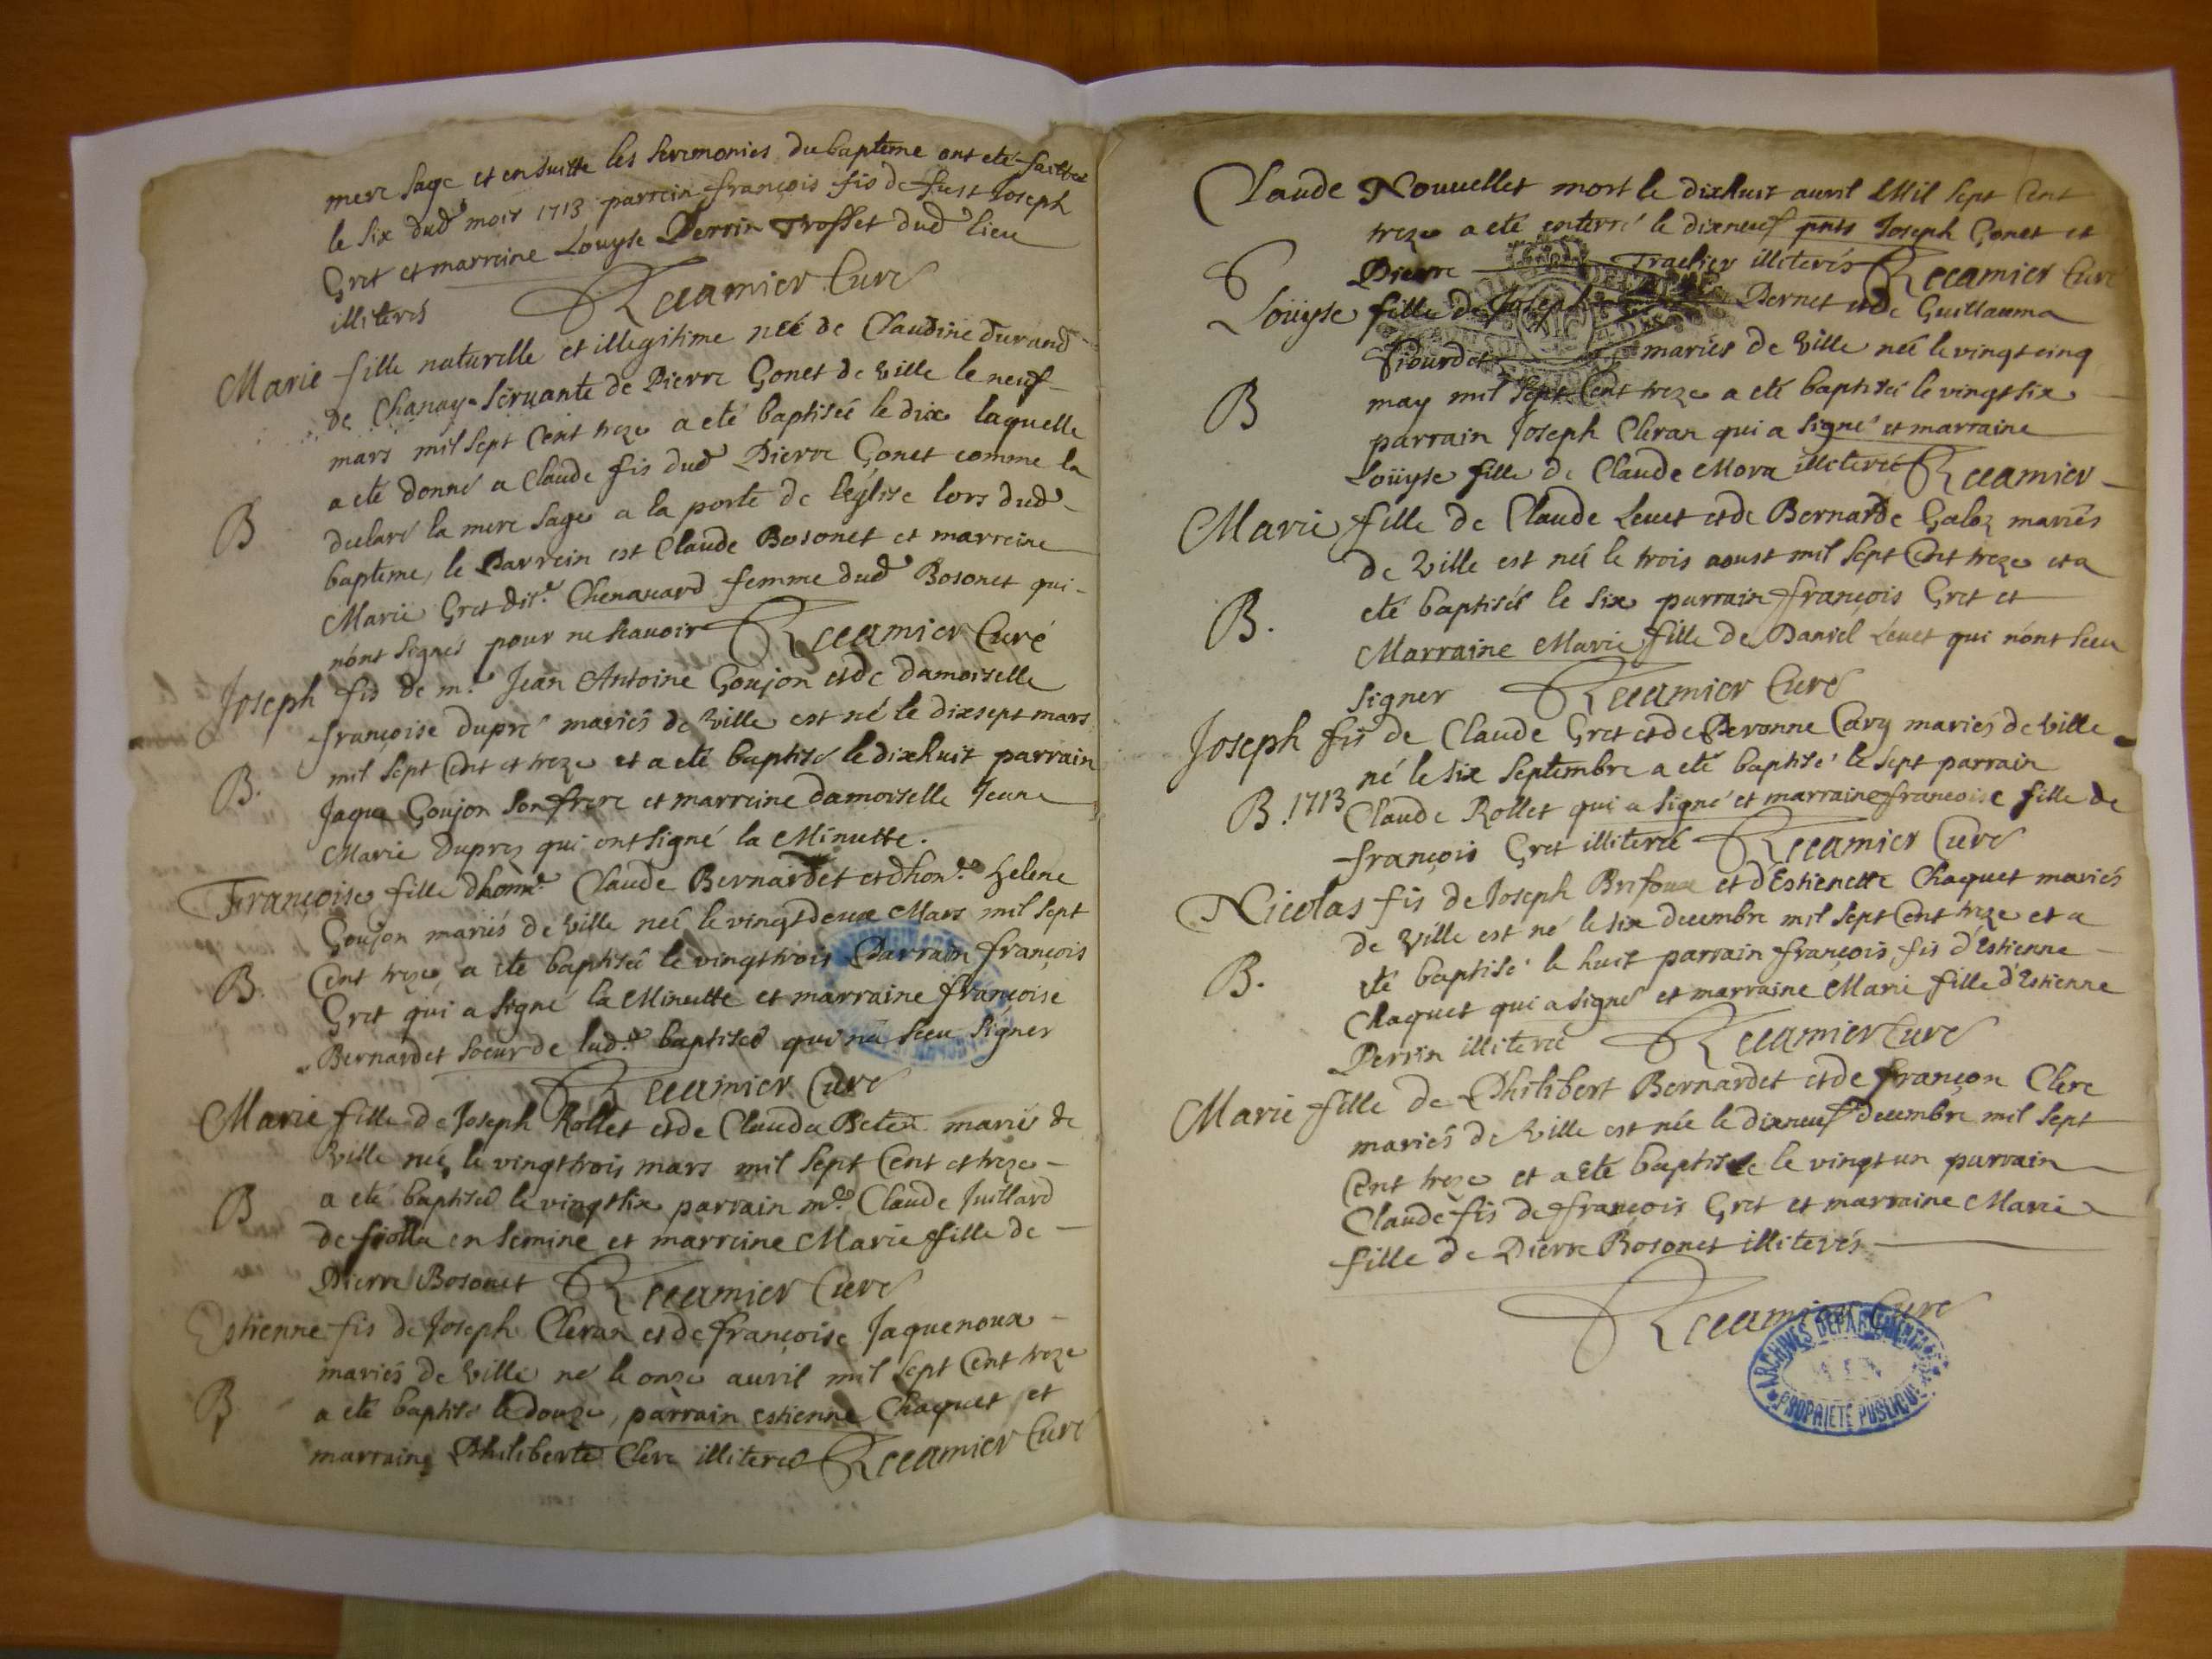 mere sage et ensuitte les seremonies du bapteme ont eté faittes
le six dud mois 1713 parrein françois fis de fust Joseph
Gret et marreine Louyse Perrin Trosset dud lieu
illiterés Recamier Curé
Marie fille naturelle et illegitime née de Claudine durand
de Chanay servante de Pierre Gonet de ville le neuf
mars mil sept cent treze a eté baptisée le dix laquelle
a eté donné a Claude fis dud Pierre Gonet comme la
B declaré la mere sage a la porte de l'eglise lors dud
bapteme, le Parrein est Claude Bosonet et marreine
Marie Gret dite Chenavard femme dud Bosonet qui
n'ont signés pour ne scavoir Recamier Curé
Joseph fis de mr Jean Antoine Goujon et de damoiselle
françoise dupré mariés de ville est né le dixsept mars
B. mil sept cent et treze et a eté baptisé le dixhuit parrain
Jaque Goujon son frere et marreine damoiselle Jeane
Marie duprez qui ont signé la Minutte.
Françoise fille dhonnre Claude Bernardet et dhonte helene
Goujon mariés de ville neé le vingtdeux Mars mil sept
B. Cent treze a eté baptisée le vingttrois Parrain françois
Gret qui a signé la Minutte et marraine françoise
Bernardet soeur de lade baptisée qui na sceu signer
Recamier Curé
Marie fille de Joseph Rollet et de Clauda Beten mariés de
Ville neé le vingttrois mars mil sept Cent et treze
B a eté baptisée le vingtsix parrain mre Claude Juillard
de friolla en semine et marreine Marie fille de
Pierre Bosonet Recamier Curé
Estienne fis de Joseph Cleran et de françoise Jaquenoux
mariés de ville né le onze auril mil sept Cent treze
B a eté baptisé le douze, parrain estienne Chaquet et
marraine Philiberte Clerc illiterés Recamier Curé
Claude Nouvellet mort le dixhuit auril Mil sept Cent
treze a eté enterré le dixneuf pnts Joseph Gonet et
Pierre Tractier illiterés Recamier Curé
Loüyse fille de Joseph Pernet et de Guillauma
Piourdet mariés de ville neé le vingtcinq
B may mil sept Cent treze a eté baptisée le vingtsix
parrain Joseph Cleran qui a signé et marraine
Loüyse fille de Claude Mora illiterée Recamier
Marie fille de Claude Levet et de Bernarde Galoz mariés
de ville est neé le trois aoust mil sept Cent treze et a
B. eté baptisée le six parrain françois Gret et
Marraine Marie fille de Daniel Levet qui n'ont sceu
signer Recamier Curé
Joseph fis de Claude Gret et de Peronne Cary mariés de ville
né le six septembre a eté baptisé le sept parrain
B. 1713 Claude Rollet qui a signé et marraine francoise fille de
françois Gret illiterée Recamier Curé
Nicolas fis de Joseph Brifoux et d'Estienette Chaquet mariés
de ville est né le six decembre mil sept Cent treze et a
B. eté baptisé le huit parrain françois fis d'Estienne
Chaquet qui a signé et marraine Marie fille d'Estienne
Perrin illiterée Recamier Curé
Marie fille de Philibert Bernardet et de françon Clerc
mariés de ville est née le dixneuf decembre mil sept
Cent treze et a eté baptisée le vingt un parrain
Claude fis de françois Gret et marraine Marie
fille de Pierre Bosonet illiterés
Recamier Curé
ARCHIVES DEPARTEMENTALES
PROPRIETE PUBLIQUE